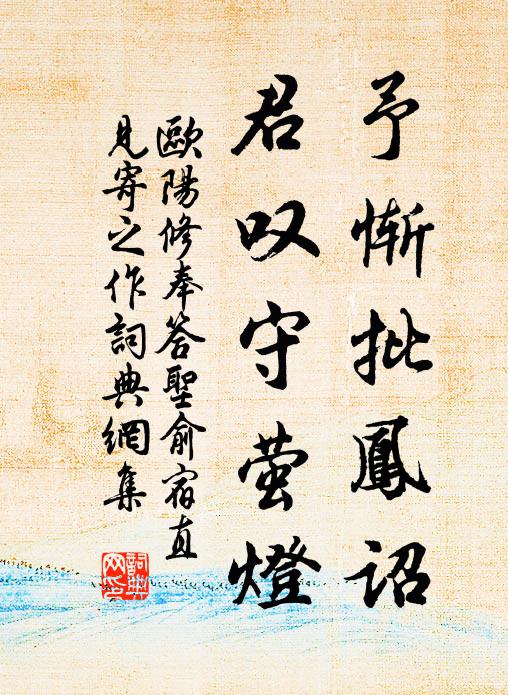 予慚批鳳詔
君叹守萤燈
歐陽修奉答聖俞宿直
見寄之作詞典網集